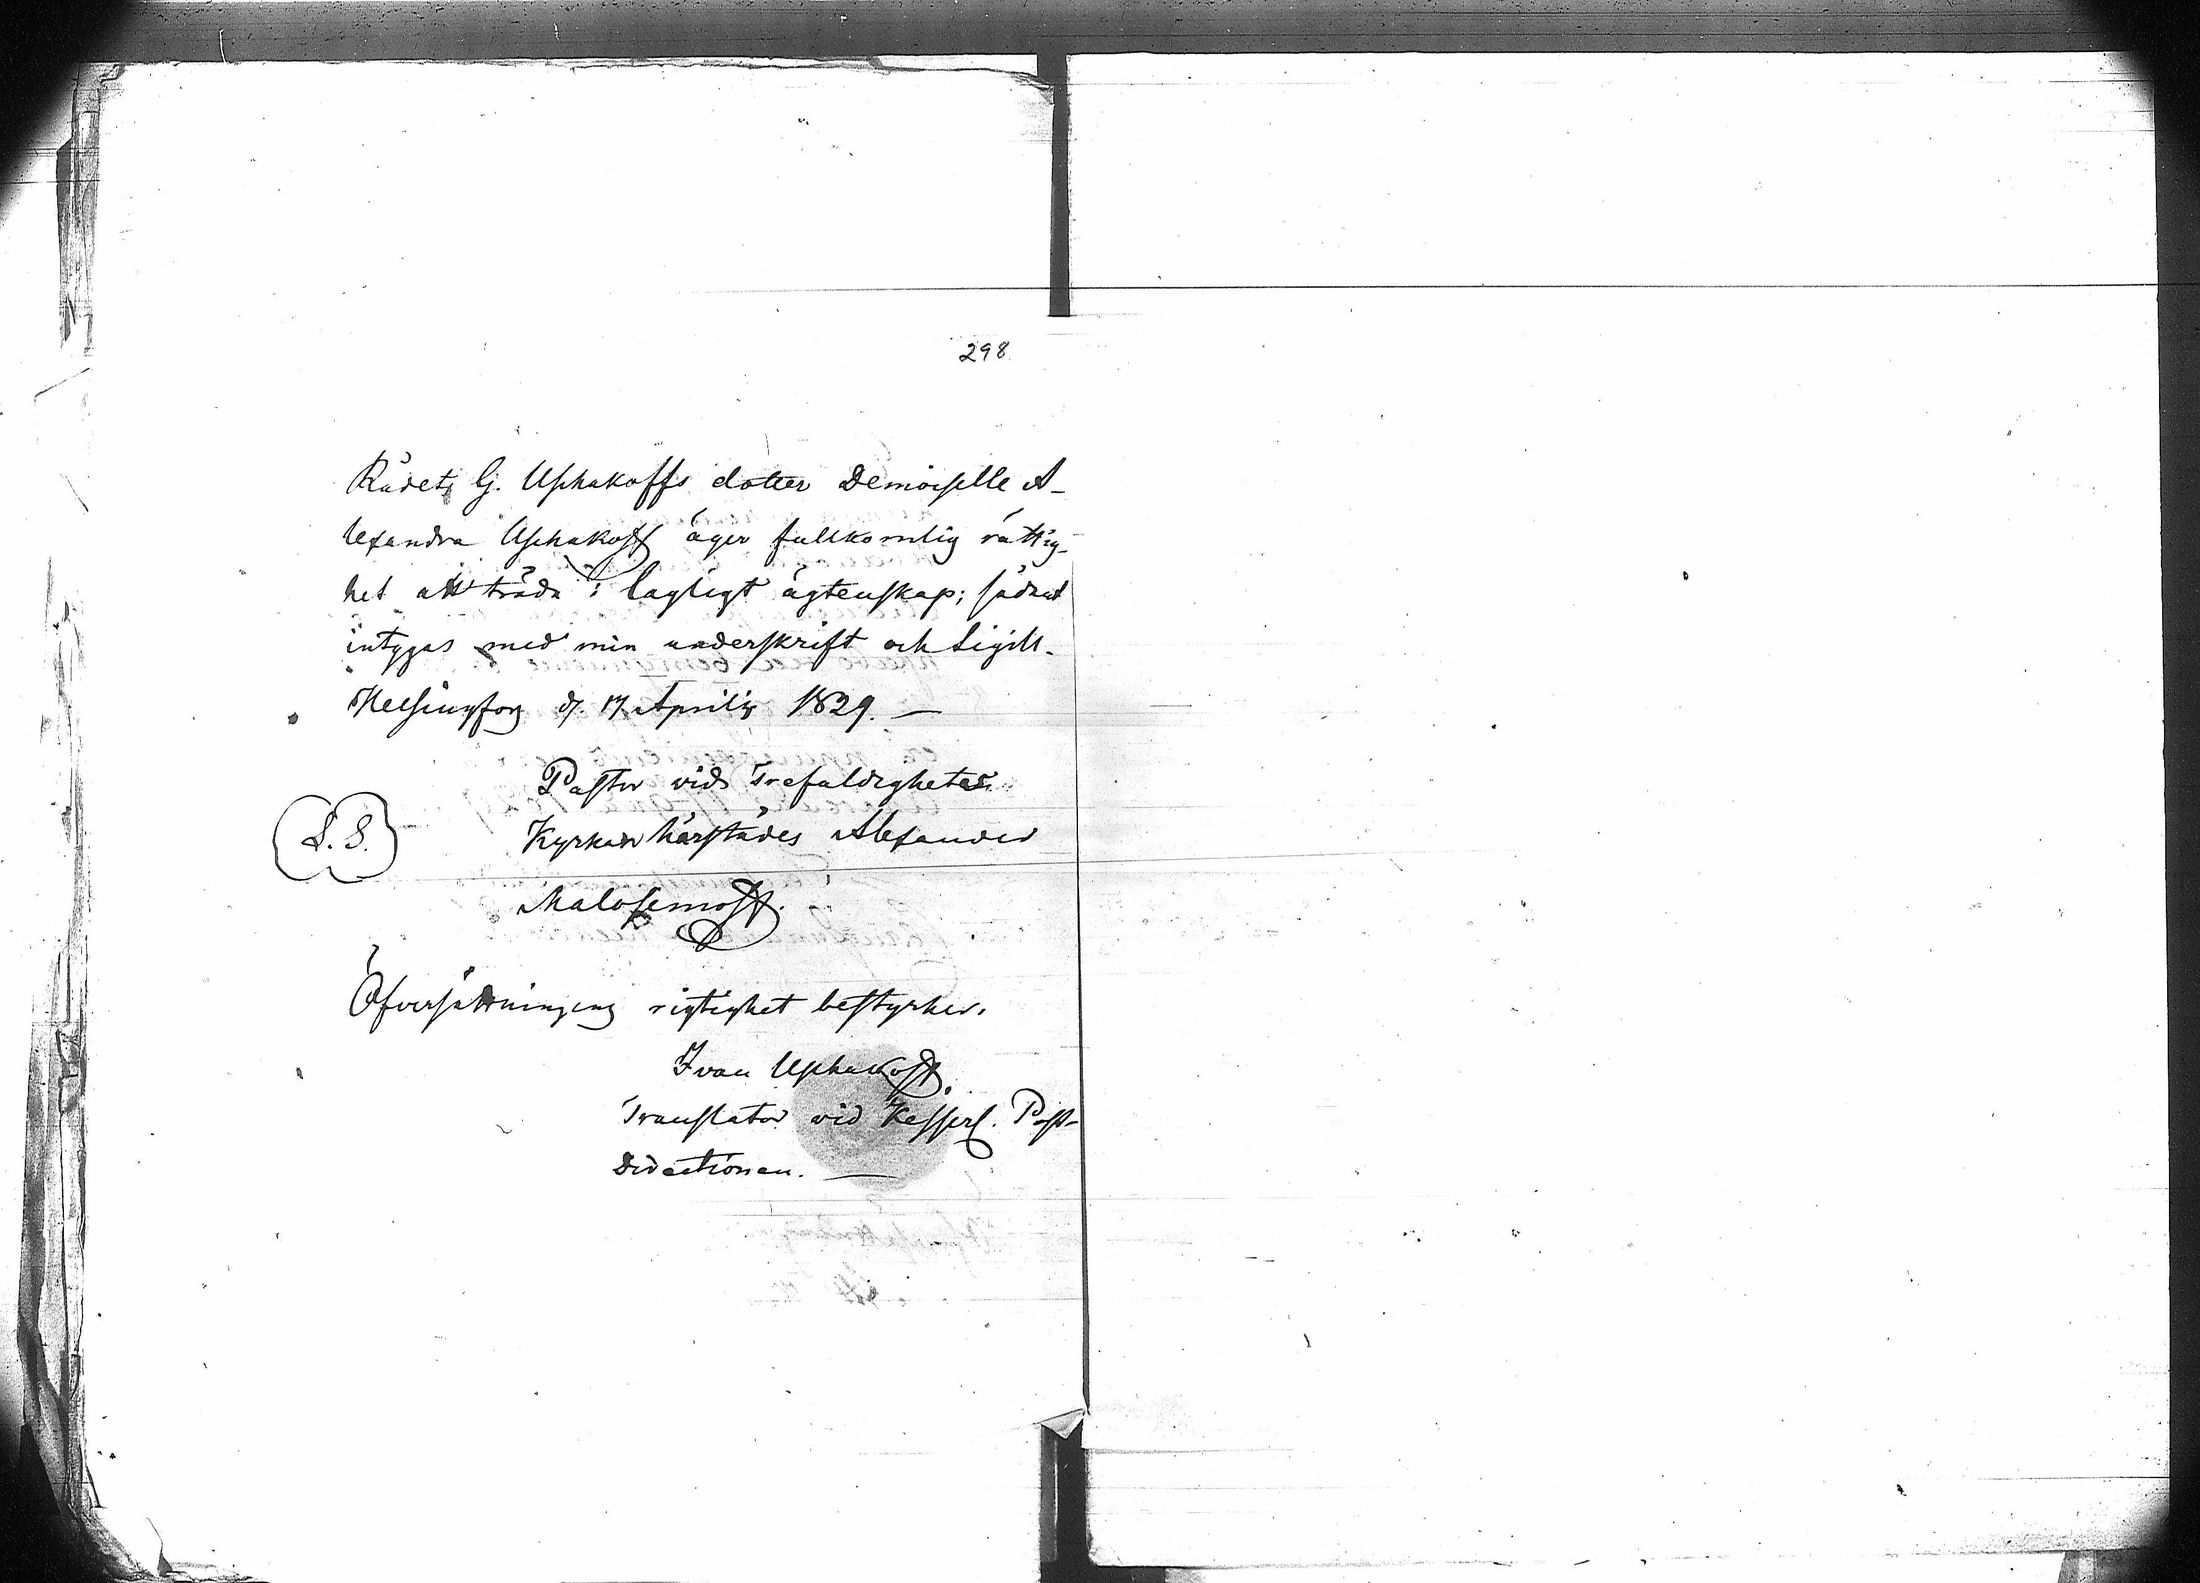 298
Rådets G. Uschakoffs dotter Demoiselle A-
lexandra Uschakoff äger fullkomlig rättig-
het att träda i lagligt ägtenskap; sådant
intygas med min underskrift och Sigill.
Helsingfors d. 17 Aprilis 1829. —
Pastor vid Trefaldighetes
Kyrkan härstädes Alexander
L. S.
Malosemoff.
Öfversättningens rigtighet bestyrker.
Ivan Uschakoff.
Translator vid Kejserl. Post-
Directionen. —